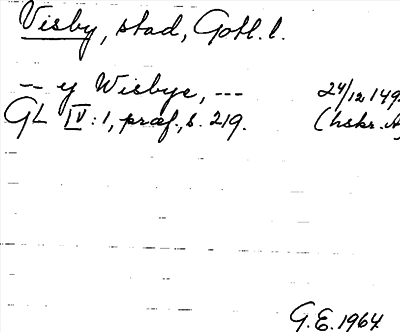 Visby, stad, Gotl. l.
-- y Wisbye, --- 24/12 149
GL IV:1, præf., s. 219. (hskr. A)
G.E. 1964